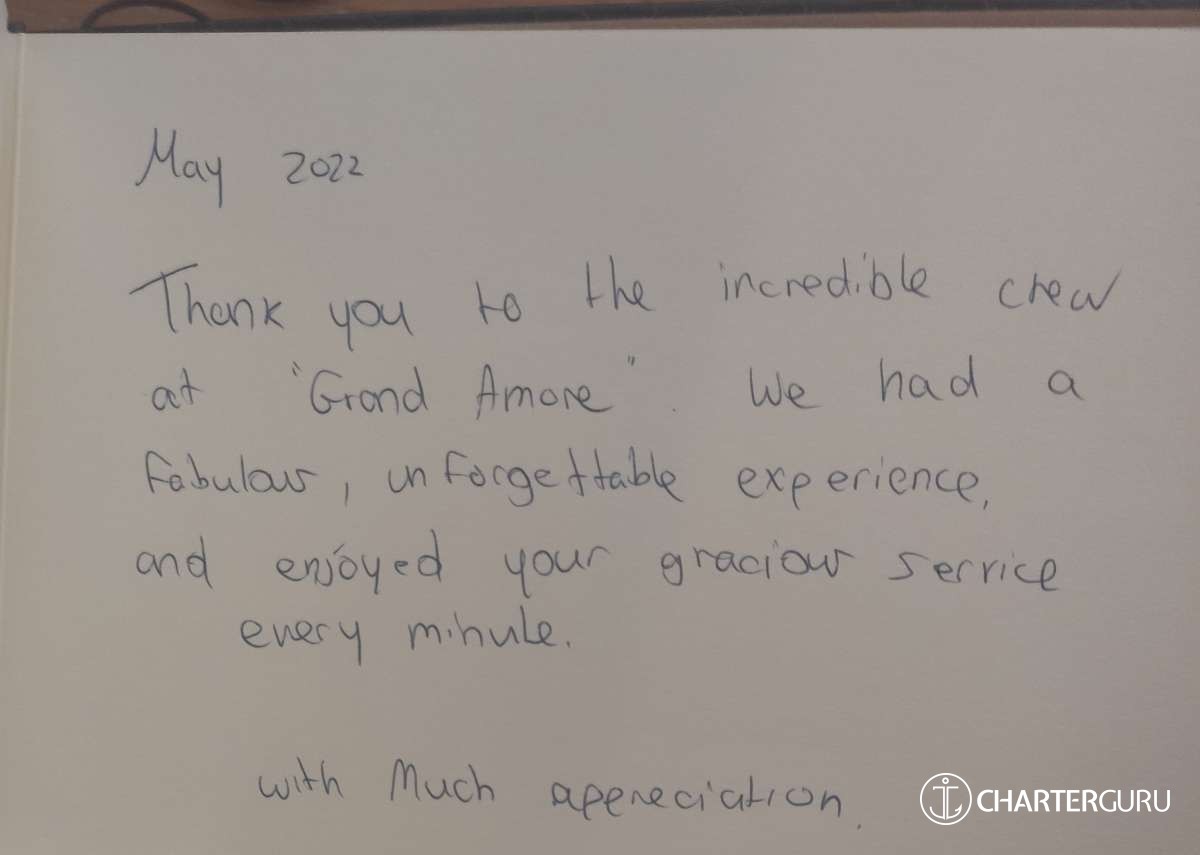 May 2022
Thank you to the incredible crew
at "Grand Amore". We had a
fabulous, unforgettable experience,
and enjoyed your gracious service
every minute.
with Much apereciation.
CHARTERGURU